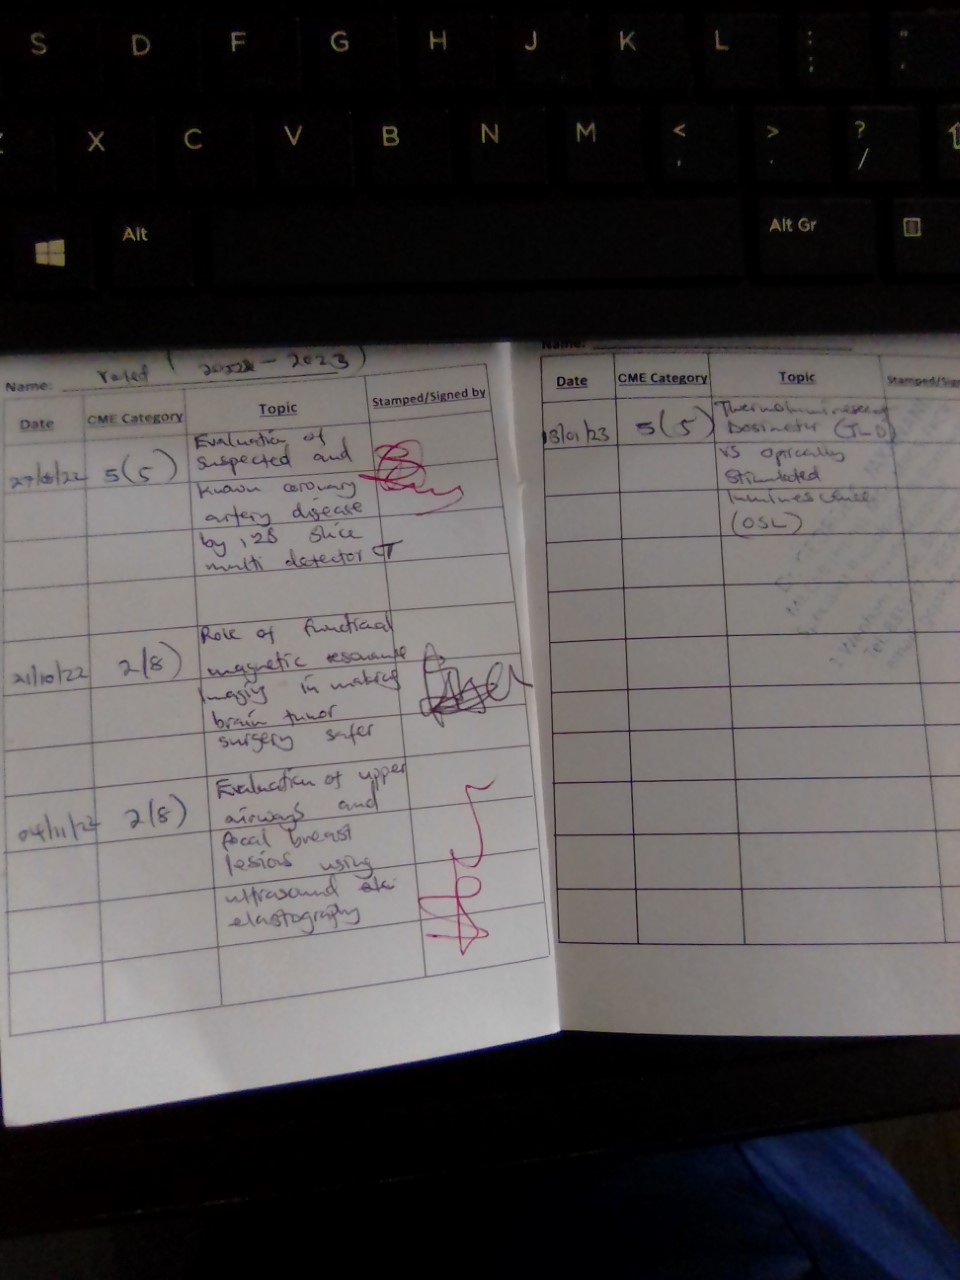 S D F G H J K L : ;
X C V B N M < , > . ? /
Alt Alt Gr
Name: (2022 – 2023)
Date CME Category Topic Stamped/Signed by
Evaluation of
27/ /22 5(5) suspected and
known coronary
artery disease
by 128 slice
multi detector CT
Role of functional
21/10/22 2(8) magnetic resonance
Imaging in making
brain tumor
surgery safer
Evaluation of upper
04/11/22 2(8) airways and
focal breast
lesions using
ultrasound
elastography
Name:
Date CME Category Topic Stamped/Sig
Thermoluminescent
13/01/23 5(5) Dosimeter (TLD)
vs optically
Stimulated
luminescence
(OSL)